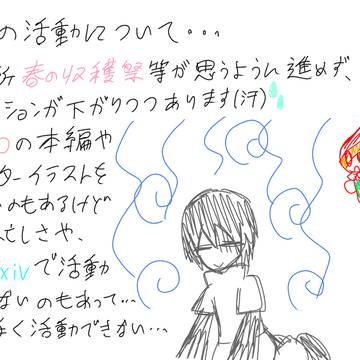 の活動について・・・
春の収穫祭等が思うように進めず、
ションが下がりつつあります(汗)
の本編や
ターイラストを
のもあるけど
しさや、
xivで活動
ないのもあって…
なく活動できない…